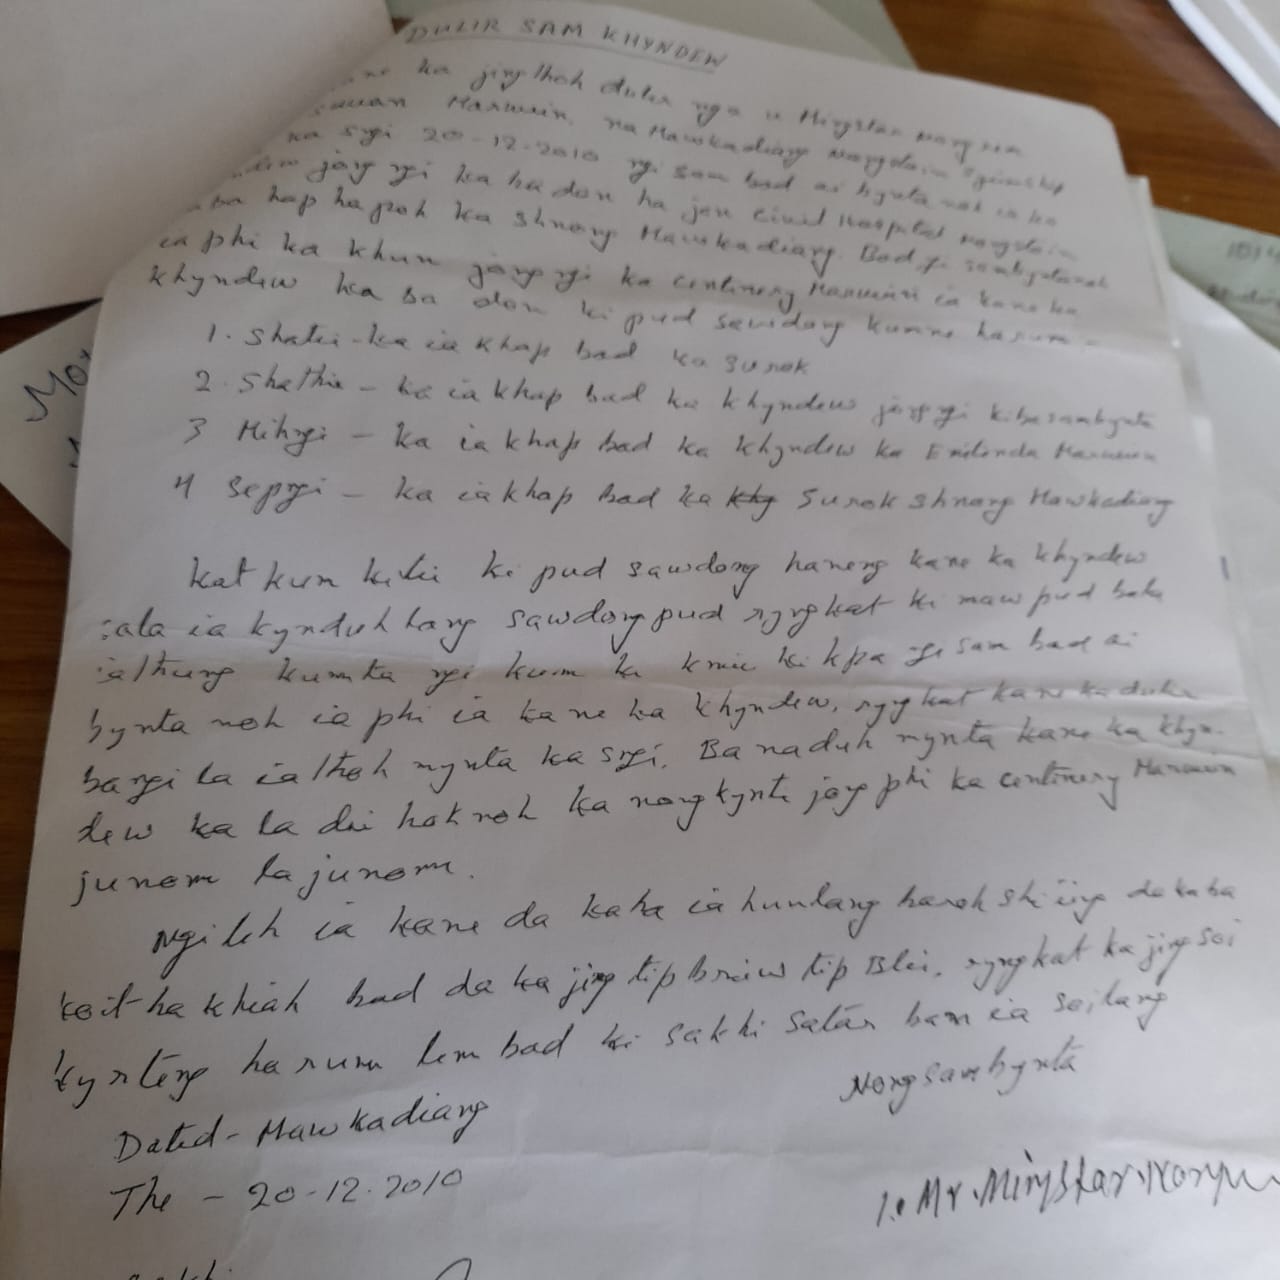 DULIR SAM KHYNDEW
ka jingthoh dulir nga u Mingstar
Marwein, na Mawkadiang Nongstoin
ka sngi 20-12-2010 ngi sam bad ai bynta noh ia ka
jong ngi ka ba don ha jan Civil Hospital Nongstoin
ba hap hapoh ka shnong Mawkadiang. Bad
ia phi ka khun jong ngi ka Centinery Marwein ia kane ka
khyndew ka ba don ki pud sawdong kumne harum
1. Shatei - ka ia khap bad ka surok
2. Shathie - ka ia khap bad ka khyndew jong ngi kiba sambynta
3 Mihngi - ka ia khap bad ka khyndew ka Marwein
4 Sepngi - ka ia khap bad ka khy surok shnong Mawkadiang
kat kum kitei ki pud sawdong haneng kane ka khyndew
ia kynduh lang sawdong pud ryngkat ki maw pud
kumta ngi kum ka kmie ki kpa sam bad ai
bynta noh ia phi ia kane ka khyndew, ryngkat kane ka dulir
ba ngi la ia thoh mynta ka sngi. Ba naduh mynta kane ka khyn-
dew ka la dei hok noh ka nongkynti jong phi ka Centinery Marwein
junom la junom.
Ngi leh ia kane da kaba ia hunlang baroh shi iing da kaba
koit ha khiah bad da ka jing tip briew tip Blei, ryngkat ka jing soi
kyrteng harum lem bad ki sakhi
Nongsambynta
Dated - Mawkadiang
The - 20-12-2010
1. Mr. Mingstar